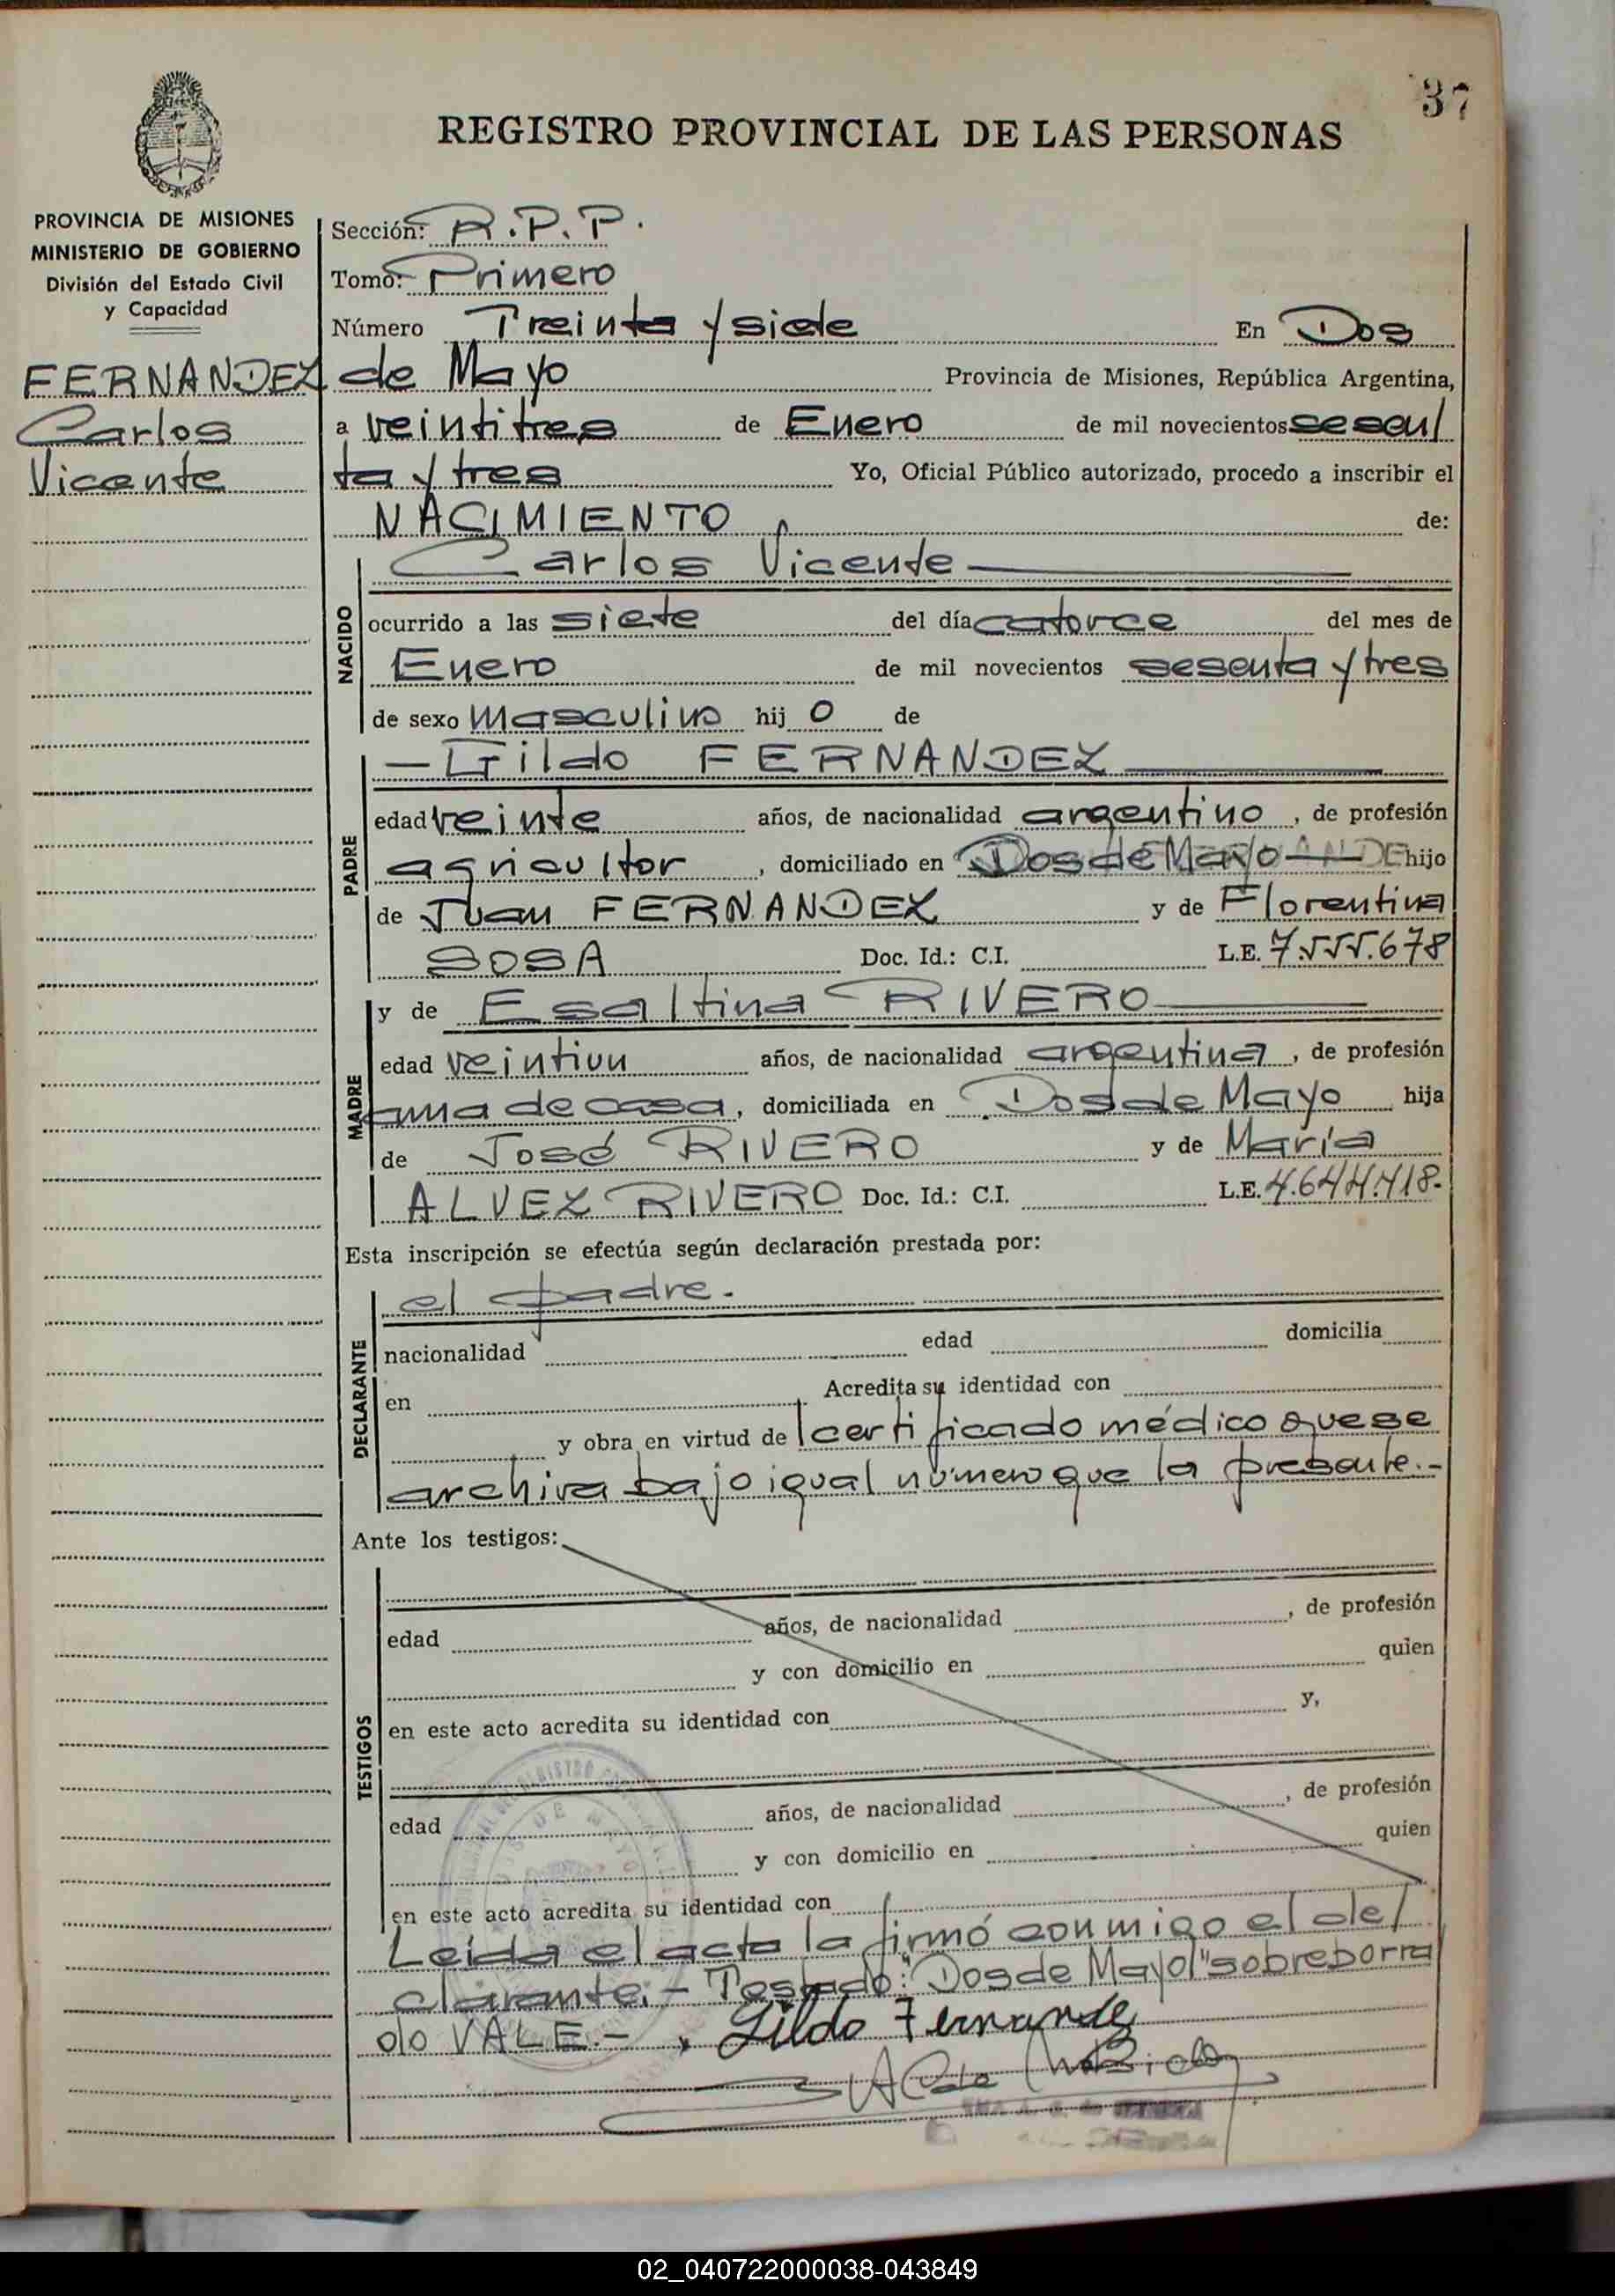 37
REGISTRO PROVINCIAL DE LAS PERSONAS
PROVINCIA DE MISIONES
MINISTERIO DE GOBIERNO
División del Estado Civil
y Capacidad
FERNANDEZ
Carlos
Vicente
Sección: R.P.P.
Tomo: Primero
Número Treinta y siete En Dos
de Mayo Provincia de Misiones, República Argentina,
a veintitres de Enero de mil novecientos sesen/
ta y tres Yo, Oficial Público autorizado, procedo a inscribir el
NACIMIENTO de:
Carlos Vicente
NACIDO
ocurrido a las siete del día catorce del mes de
Enero de mil novecientos sesenta y tres
de sexo masculino hijo de
- Gildo FERNANDEZ
PADRE
edad veinte años, de nacionalidad argentino, de profesión
agricultor, domiciliado en Dos de Mayo hijo
de Juan FERNANDEZ y de Florentina
SOSA Doc. Id.: C.I. L.E. 7.555.678
MADRE
y de Esaltina RIVERO
edad veintiun años, de nacionalidad argentina, de profesión
ama de casa, domiciliada en Dos de Mayo hija
de José RIVERO y de María
ALVEZ RIVERO Doc. Id.: C.I. L.E. 4.644.418.-
Esta inscripción se efectúa según declaración prestada por:
el padre.
DECLARANTE
nacionalidad edad domicilia
en Acredita su identidad con
y obra en virtud de l certificado médico que se
archiva bajo igual número que la presente.-
Ante los testigos:
TESTIGOS
edad años, de nacionalidad , de profesión
y con domicilio en quien
en este acto acredita su identidad con y,
edad años, de nacionalidad , de profesión
y con domicilio en quien
en este acto acredita su identidad con
Leida el acta la firmó conmigo el de/
clarante.- Testado: "Dos de Mayo" sobreborra
do VALE.- Gildo Fernandez
02_040722000038-043849